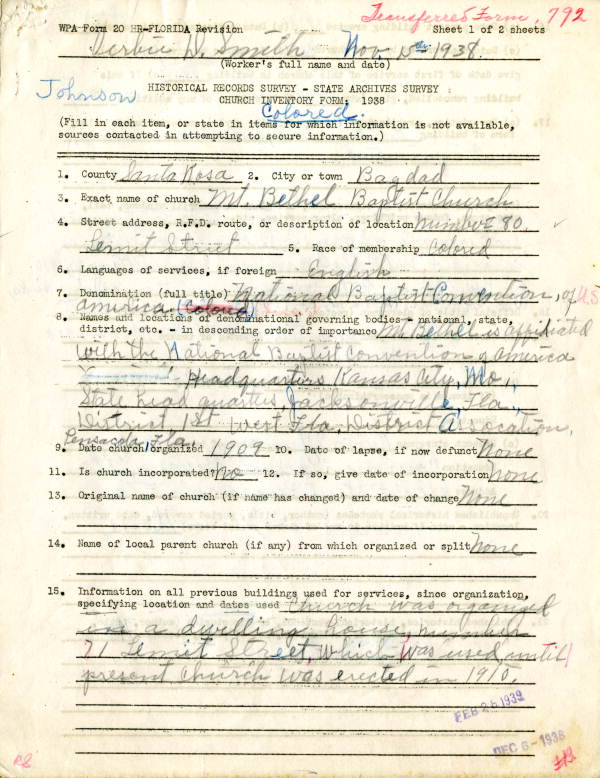 Transferred Form, 792
WPA Form 20 HR-FLORIDA Revision Sheet 1 of 2 sheets
D. Smith Nov, 15th 1938.
(Worker's full name and date)
Johnson
HISTORICAL RECORDS SURVEY - STATE ARCHIVES SURVEY
CHURCH INVENTORY FORM: 1938
Colored.
(Fill in each item, or state in items for which information is not available,
sources contacted in attempting to secure information.)
1. County Santa Rosa 2. City or town Bagdad
3. Exact name of church Mt. Bethel Baptist Church
4. Street address, R.F.D. route, or description of location Number 80.
Lemit Street 5. Race of membership Colored
6. Languages of services, if foreign English
7. Denomination (full title) National Baptist Convention, of U.S
America. (Colored)
8. Names and locations of denominational governing bodies - national, state,
district, etc. - in descending order of importance Mt. Bethel is affiliated
with the National Baptist Convention of America
Headquarters Kansas City, Mo.,
State head quarters, Jacksonville, Fla.,
District 1st West Fla, District Association,
Pensacola, Fla.
9. Date church organized 1909 10. Date of lapse, if now defunct None
11. Is church incorporated? No 12. If so, give date of incorporation None
13. Original name of church (if name has changed) and date of change None
14. Name of local parent church (if any) from which organized or split None
15. Information on all previous buildings used for services, since organization,
specifying location and dates used Church was organized
in a dwelling house, number
71 Lemit Street, which was used, until
present church was erected in 1910.
FEB 25 1939
DEC 6 - 1938